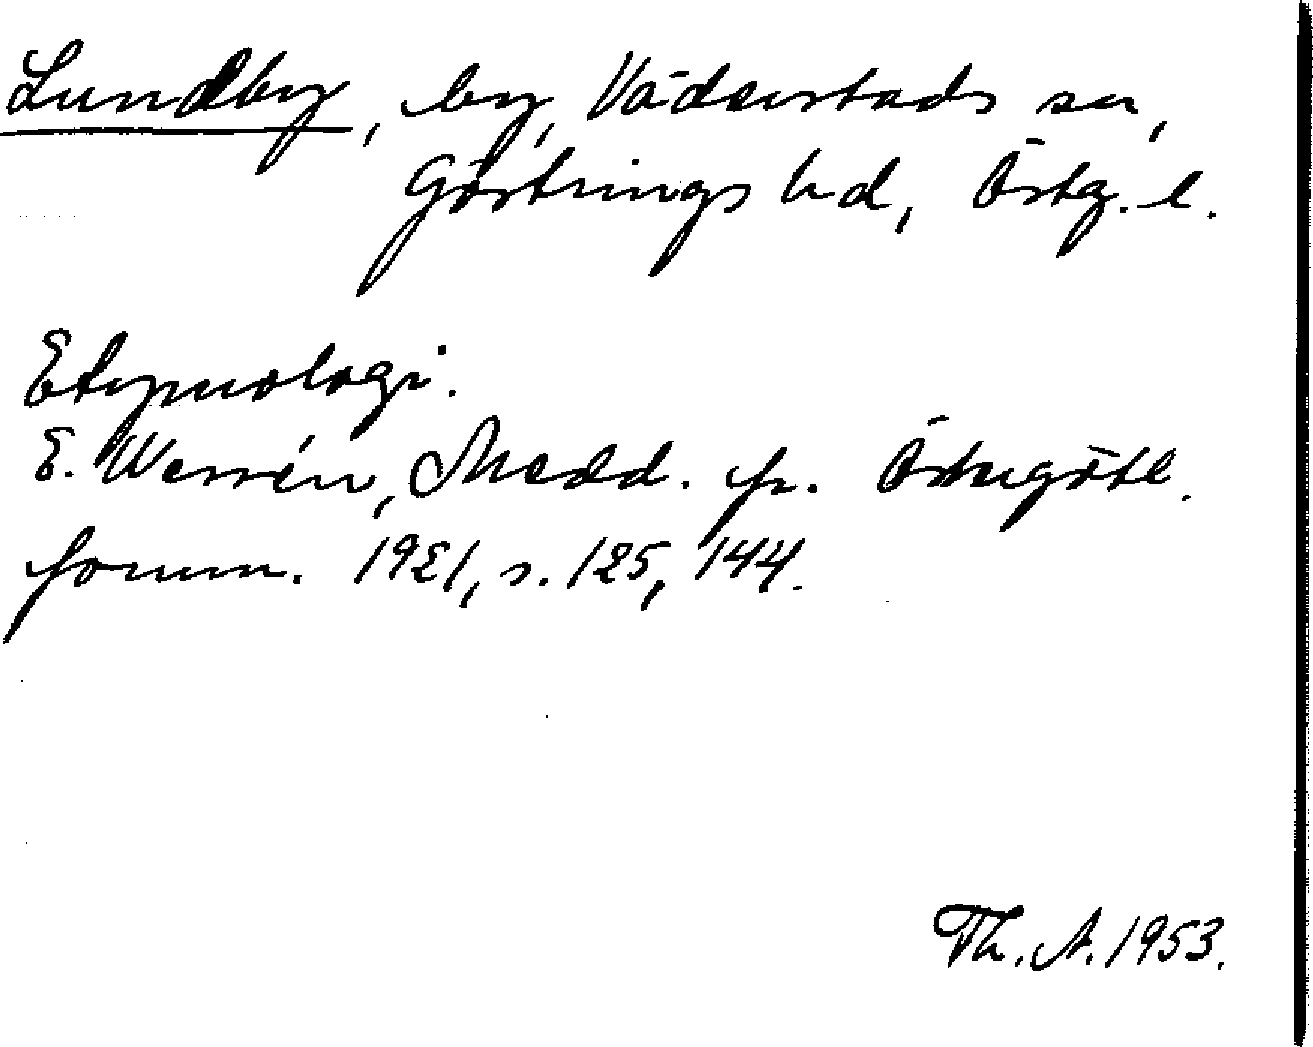 Lundby, by, Väderstads sn,
Göstrings hd, Östg. l.
Etymologi.
E. Wessén, Medd. fr. Östergötl.
fornm. 1921, s. 125, 144.
Th. A. 1953.